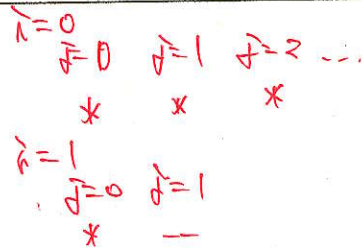 i=0
j=0 j=1 j=2 ...
* * *
i=1
j=0 j=1
* —